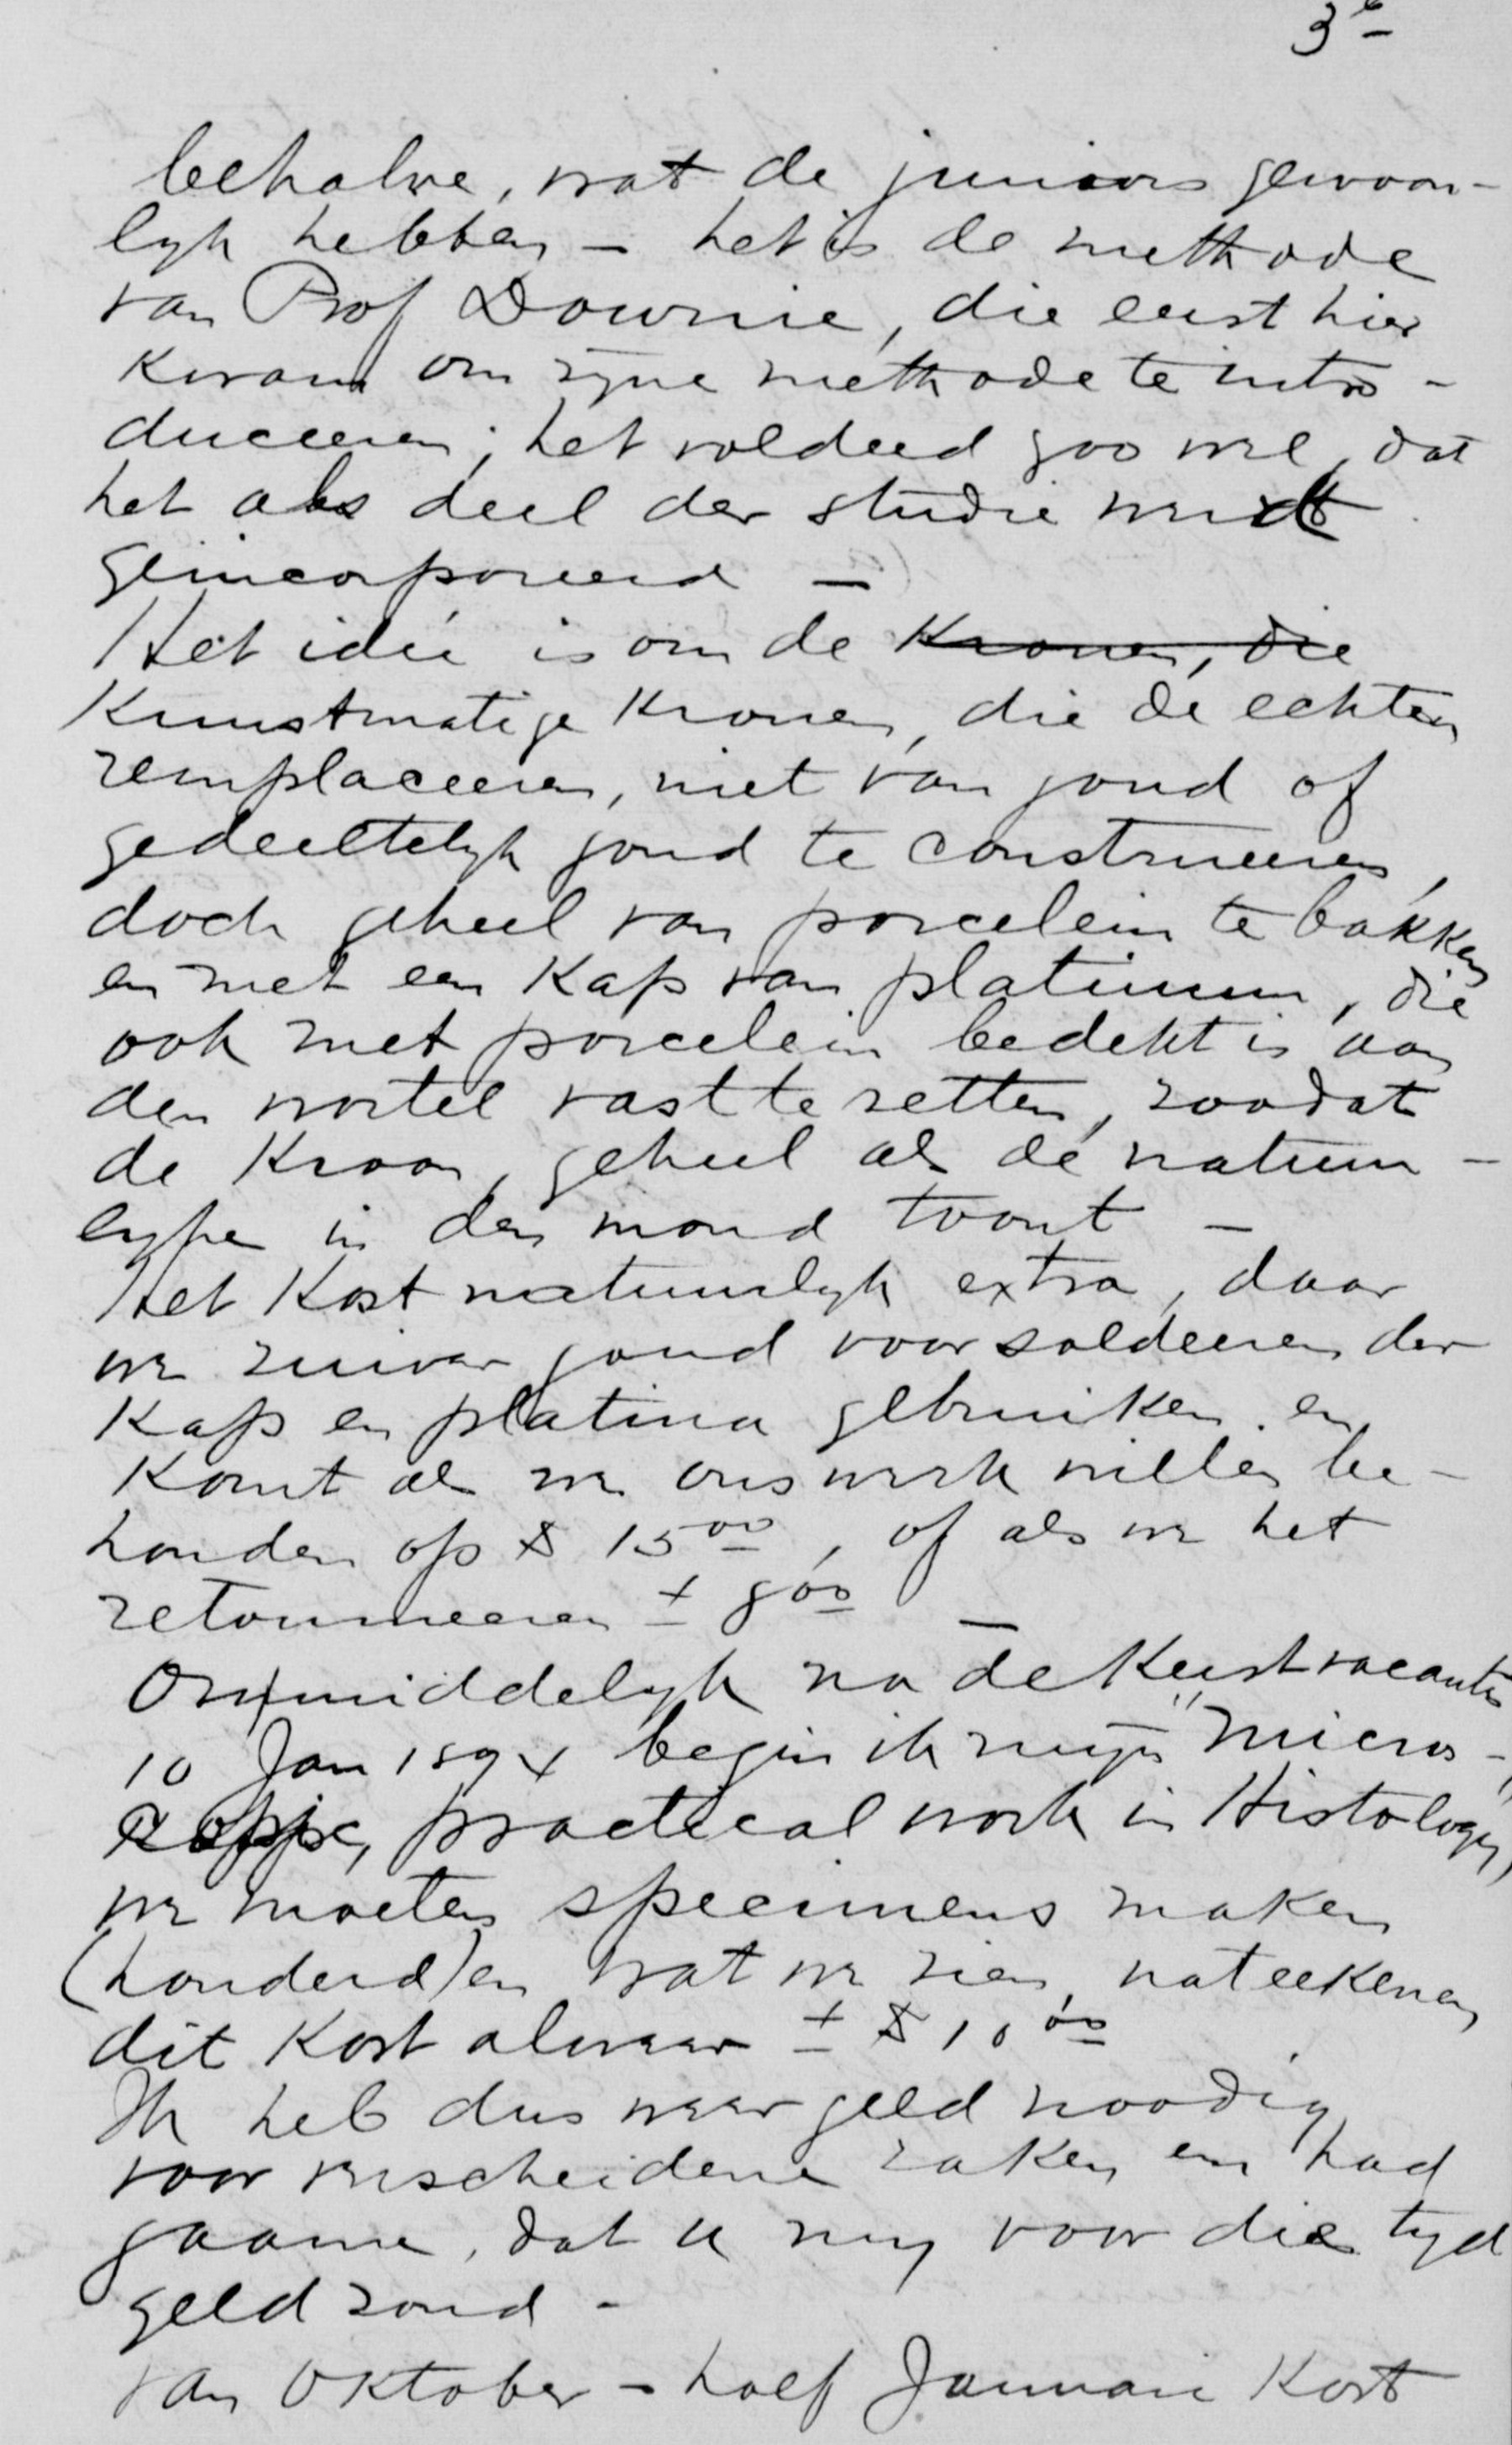 3e
behalve, wat de juniors gewoon-
lyk hebben - het is de methode
van Prof Downie, die eerst hier
kwam om zyne methode te intro-
duceeren; het voldeed zoo wel, dat
het als deel der studie werd
geïncorporeerd -
Het idée is om de Kronen, die
Kunstmatige Kronen, die de echten
remplaceeren, niet van goud of
gedeeltelyk goud te construeeren,
doch geheel van porcelein te bakken
en met een Kap van platinum, die
ook met porcelein bedekt is aan
den wortel vast te zetten, zoodat
de Kroon, geheel als de natuur-
lyke in den mond toont -
Het Kost natuurlyk extra, daar
we zuiver goud voor soldeeren der
Kap en platina gebruiken en
Komt als we ons werk willen be-
houden op $ 15 00, of als we het
retourneeren ± 8 00 -
Onmiddelyk na de Kerstvacantie
10 Jan 1894 begin ik myn "micros-
practical work in Histology"
we moeten specimens maken
(honderd) en wat we zien, nateekenen
dit Kost alweer ± $ 10 00
Ik heb dus weer geld noodig
voor verscheidene zaken en had
gaarne, dat u my voor dien tyd
geld zond -
van Oktober - half Januari Kost